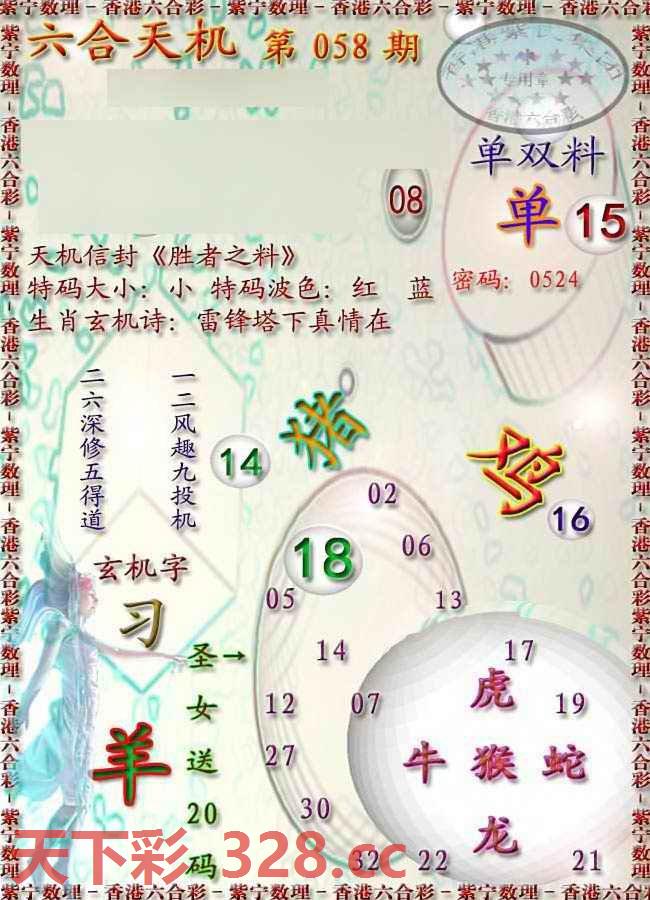 紫宁数理－香港六合彩－紫宁数理－香港六合彩－紫宁数理－香港六合彩
六合天机 第 058 期
香港紫宁集团
专用章
香港六合彩
单双料
单 15
08
天机信封《胜者之料》
特码大小：小 特码波色：红 蓝
密码：0524
生肖玄机诗：雷锋塔下真情在
一二风趣九投机
二六深修五得道
猪
鸡
14
16
02
18
06
玄机字
05
13
习
圣女送20码
→
14
17
虎
12
07
19
羊
27
牛 猴 蛇
30
龙
32
22
21
天下彩.328.cc
紫宁数理－香港六合彩－紫宁数理－香港六合彩－紫宁数理－香港六合彩